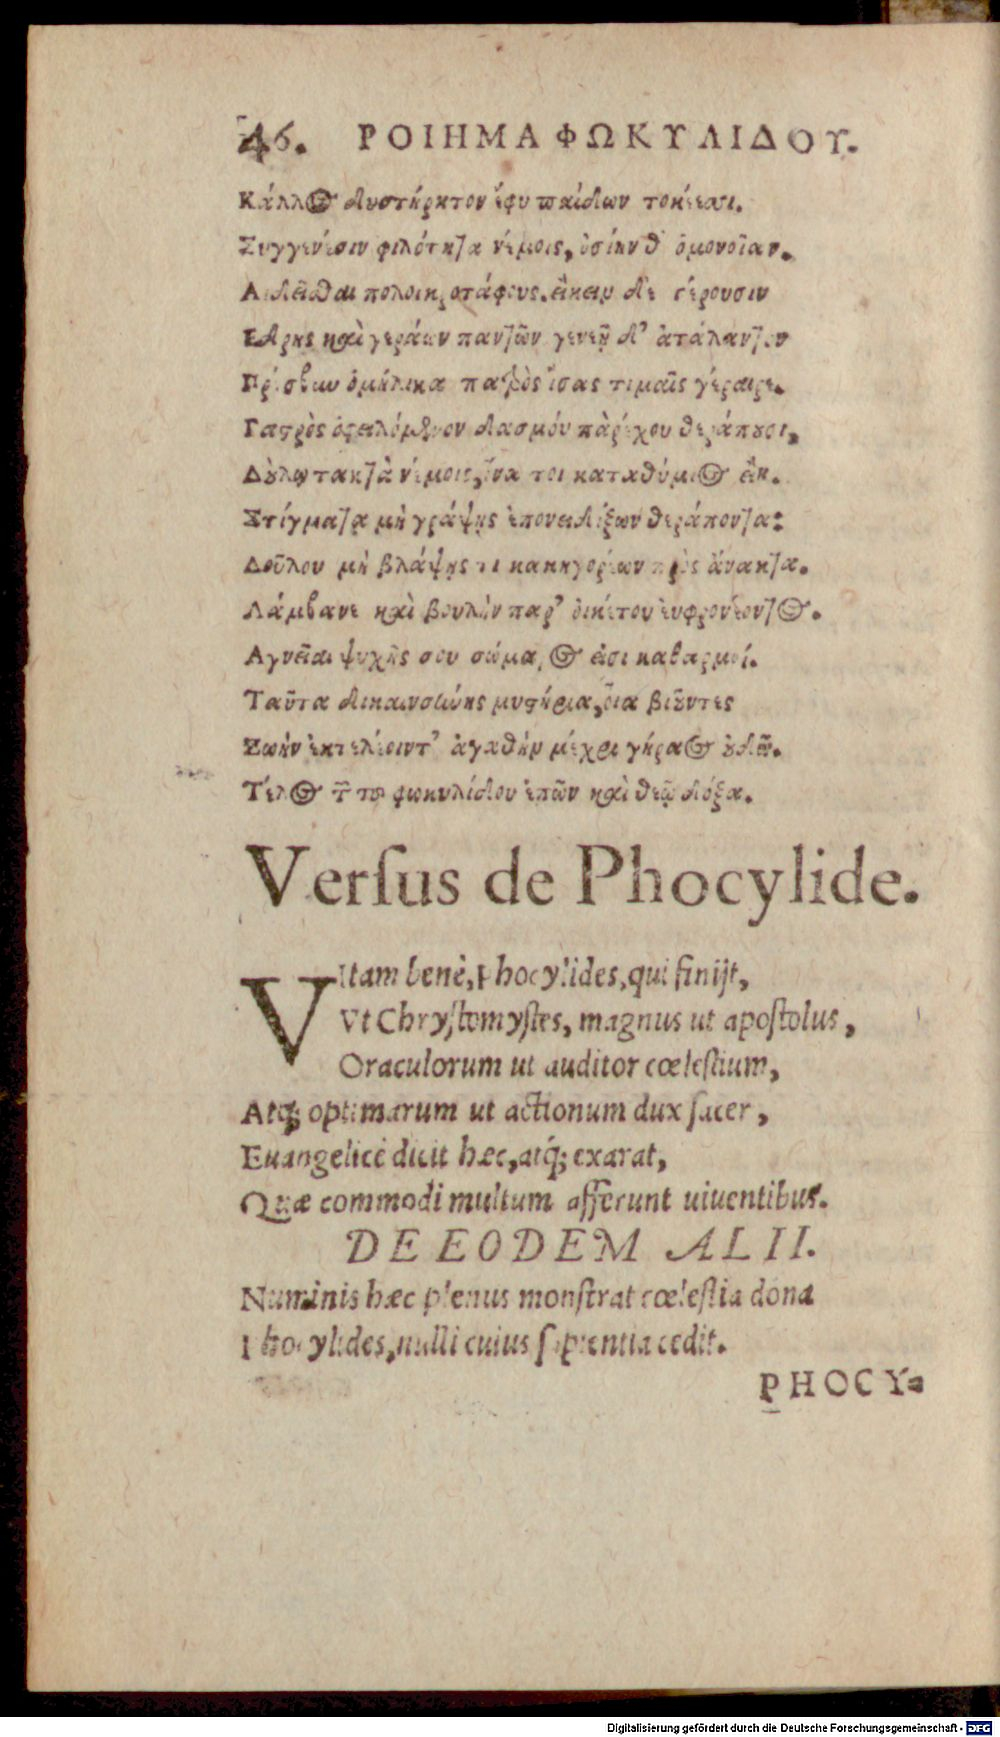 46. ΡΟΙΗΜΑ ΦΩΚΥΛΙΔΟΥ.
Κάλλος δυστήρητον ἔφυ παίδων τοκέεσσι.
Συγγενέσιν φιλότητα νέμοις, ὁσίην θ' ὁμονοῖαν.
Αἰδεῖσθαι πολιοκροτάφους. εἴκειν δὲ γέρουσιν
Εδρης καὶ γεράων πάντων γενεῇ δ' ἀτάλαντον
Πρέσβυν ὁμήλικα πατρὸς ἴσαις τιμαῖς γέραιρε.
Γαστρὸς ὀφειλόμενον δασμόν πὰρέχου θεράπουσι,
Δούλῳ τακτὰ νέμοις, ἵνα τοι καταθύμιος εἴη.
Στίγματα μὴ γράψῃς ἐπονειδίζων θεράποντα:
Δοῦλον μὴ βλάψῃς τι κακηγορέων πρὸς ἄνακτα.
Λάμβανε καὶ βουλὴν παρ' οἰκέτου ἐυφρονέοντος.
Αγνεῖαι ψυχῆς σου σώματος εἰσι καθαρμοί.
Ταῦτα δικαιοσύνης μυστήρια, οἷα βιοῦντες
Ζωὴν ἐκτελέοιντ' ἀγαθὴν μέχρι γήραος οὐδοῦ.
Τέλος τῶν τοῦ φωκυλίδου ἐπῶν καὶ θεῷ δόξα.
Verſus de Phocylide.
VItam benè, Phocylides, qui finijt,
Vt Chryſtomyſtes, magnus ut apoſtolus,
Oraculorum ut auditor cœleſtium,
Atq́; optimarum ut actionum dux ſacer,
Euangelicè dicit hæc, atq́; exarat,
Quæ commodi multum afferunt uiuentibus.
DE EODEM ALII.
Numinis hæc plenus monſtrat cœleſtia dona
Phocylides, nulli cuius ſapientia cedit.
PHOCY-
Digitalisierung gefördert durch die Deutsche Forschungsgemeinschaft - DFG